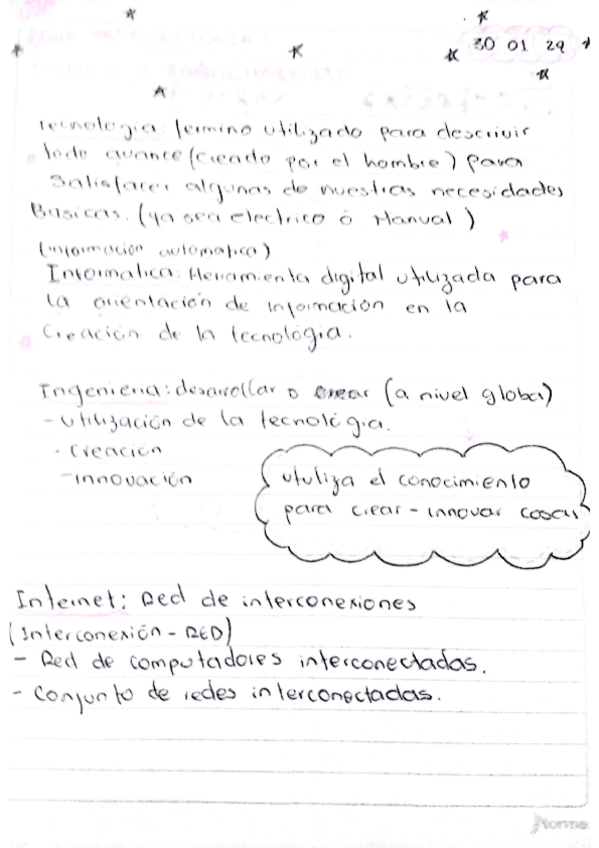 30 01 24
tecnologia: termino utilizado para descrivir
todo avance (creado por el hombre) para
satisfacer algunas de nuestras necesidades
Basicas. (ya sea electrico o Manual)
(información automatica)
Informatica: Herramienta digital utilizada para
la orientación de información en la
Creación de la tecnológia.
Ingenieria: desarollar o crear (a nivel global)
- utilización de la tecnológia.
- Creación
- innovación
utuliza el conocimiento
para crear - innovar cosas
Internet: Red de interconexiones
(Interconexión - RED)
- Red de computadores interconectadas.
- Conjunto de redes interconectadas.
Norma